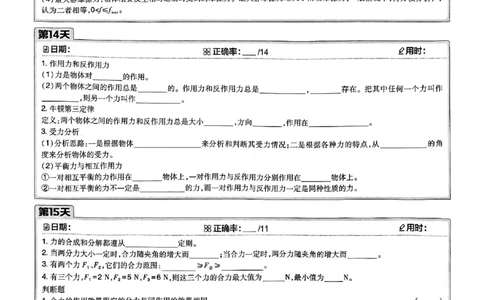 认为二者相等,0<f≤fmax。
第14天
日期: 正确率:___/14 用时:
1. 作用力和反作用力
(1)力是物体对______的作用。
(2)两个物体之间的作用总是______的。作用力和反作用力总是______,______存在。把其中任何一个力叫作
______,则另一个力叫作______。
2. 牛顿第三定律
定义:两个物体之间的作用力和反作用力总是大小______,方向______,作用在______。
3. 受力分析
(1)分析思路:一是根据物体______来分析和判断其受力情况;二是根据各种力的特点,从______的角
度来分析物体的受力。
(2)平衡力与相互作用力
①一对相互平衡的力作用在______物体上,一对作用力与反作用力分别作用在______物体上。
②一对相互平衡的力不一定是______的力,而一对作用力与反作用力一定是同种性质的力。
第15天
日期: 正确率:___/11 用时:
1. 力的合成和分解都遵从______定则。
2. 当两分力大小一定时,合力随夹角的增大而______;当合力一定时,两分力随夹角的增大而______。
3. 有两个力F₁、F₂,它们的合力范围:______≥F合≥______。
4. 有三个力,F₁=2 N,F₂=5 N,F₃=6 N,则这三个力的合力最大值为______N,最小值为______N。
判断题